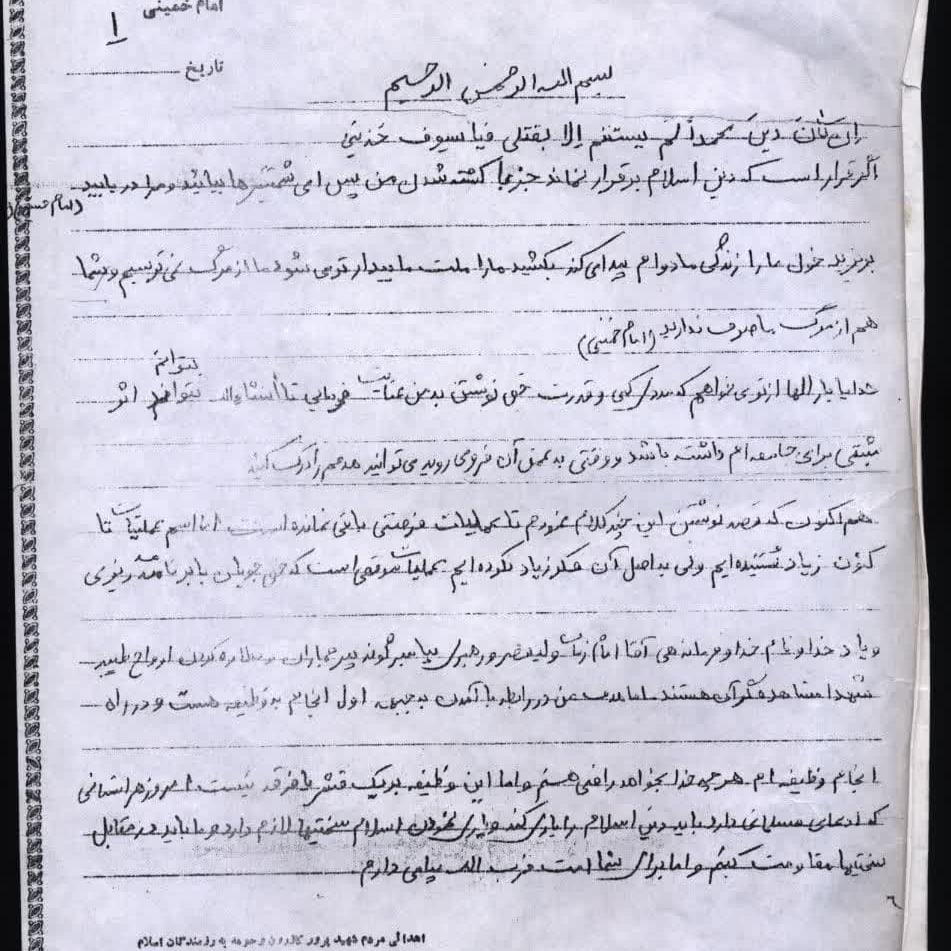 امام خمینی
۱
تاریخ
بسم الله الرحمن الرحیم
ان کان دین محمد لم یستقم الا بقتلی فیا سیوف خذینی
اگر قرار است که دین اسلام برقرار نماند جز با کشته شدن من پس ای شمشیرها بیائید و مرا دریابید
(امام حسین)
بریزید خون ما را زندگی ما دوام پیدا می کند بکشید ما را ملت ما بیدارتر می شود ما از مرگ نمی ترسیم و شما
هم از مرگ ما صرف ندارید (امام خمینی)
بتوانم
خدایا بارالها از تو می خواهم که مددم کنی و قدرت نوشتن به من عنایت فرمایی تا انشاءالله اثر
مثبتی برای جامعه ام داشته باشد و وقتی به عمق آن فرو می روید می توانید هدفم را درک کنید
هم اکنون که قصد نوشتن این چند کلام نمودم تا عملیات فرصتی باقی نمانده است اسم عملیات تا
کنون زیاد شنیده ایم ولی به اصل آن فکر زیاد نکرده ایم عملیات موقعی است که حق جویان با برنامه ریزی
و یاد خدا و نام خدا و فرماندهی آقا امام زمان ولیعصر و رهبری پیامبرگونه پیر جماران و ارواح طیبه
شهدا مشاهده گر آن هستند اما هدف من در رابطه با آمدن به جبهه اول انجام وظیفه هست و در راه
انجام وظیفه ام هر چه خدا بخواهد راضی هستم و اما این وظیفه بر یک قشر یا فرقه نیست امروز هر انسانی
که ادعای مسلمانی دارد باید دین اسلام را یاری کند و یاری نمودن اسلام سختیها لازم دارد و ما باید در مقابل
سختیها مقاومت کنیم و اما برای شما امت حزب الله پیامی دارم
اهدائی مردم شهید پرور کازرون و حومه به رزمندگان اسلام